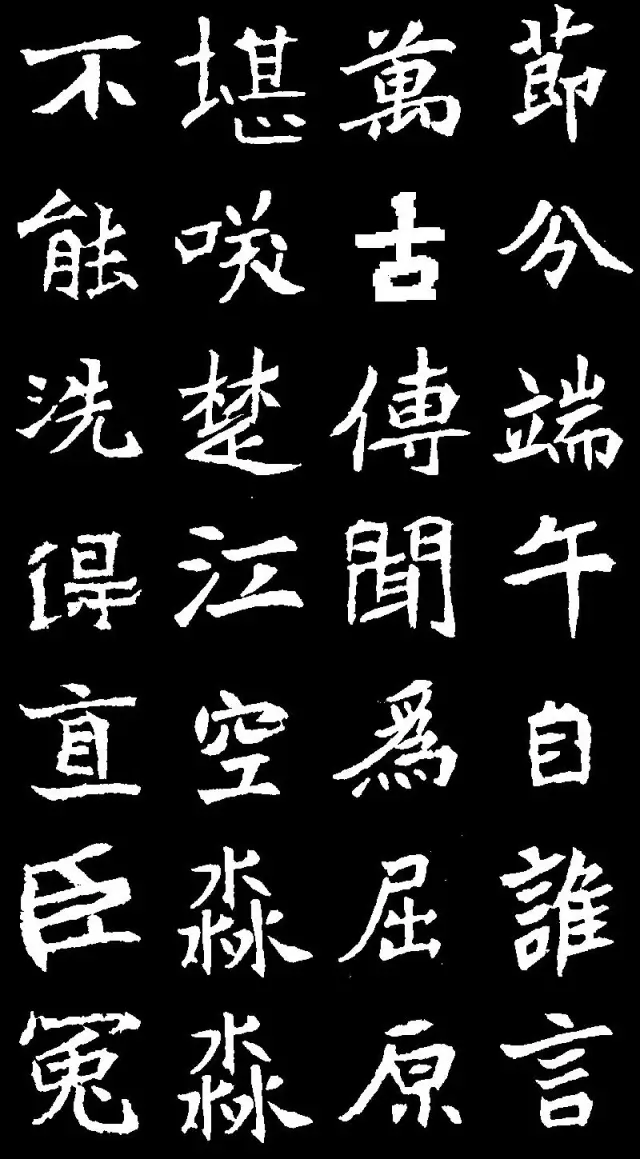 節分端午自誰言
萬古傳聞為屈原
堪咲楚江空淼淼
不能洗得直臣冤